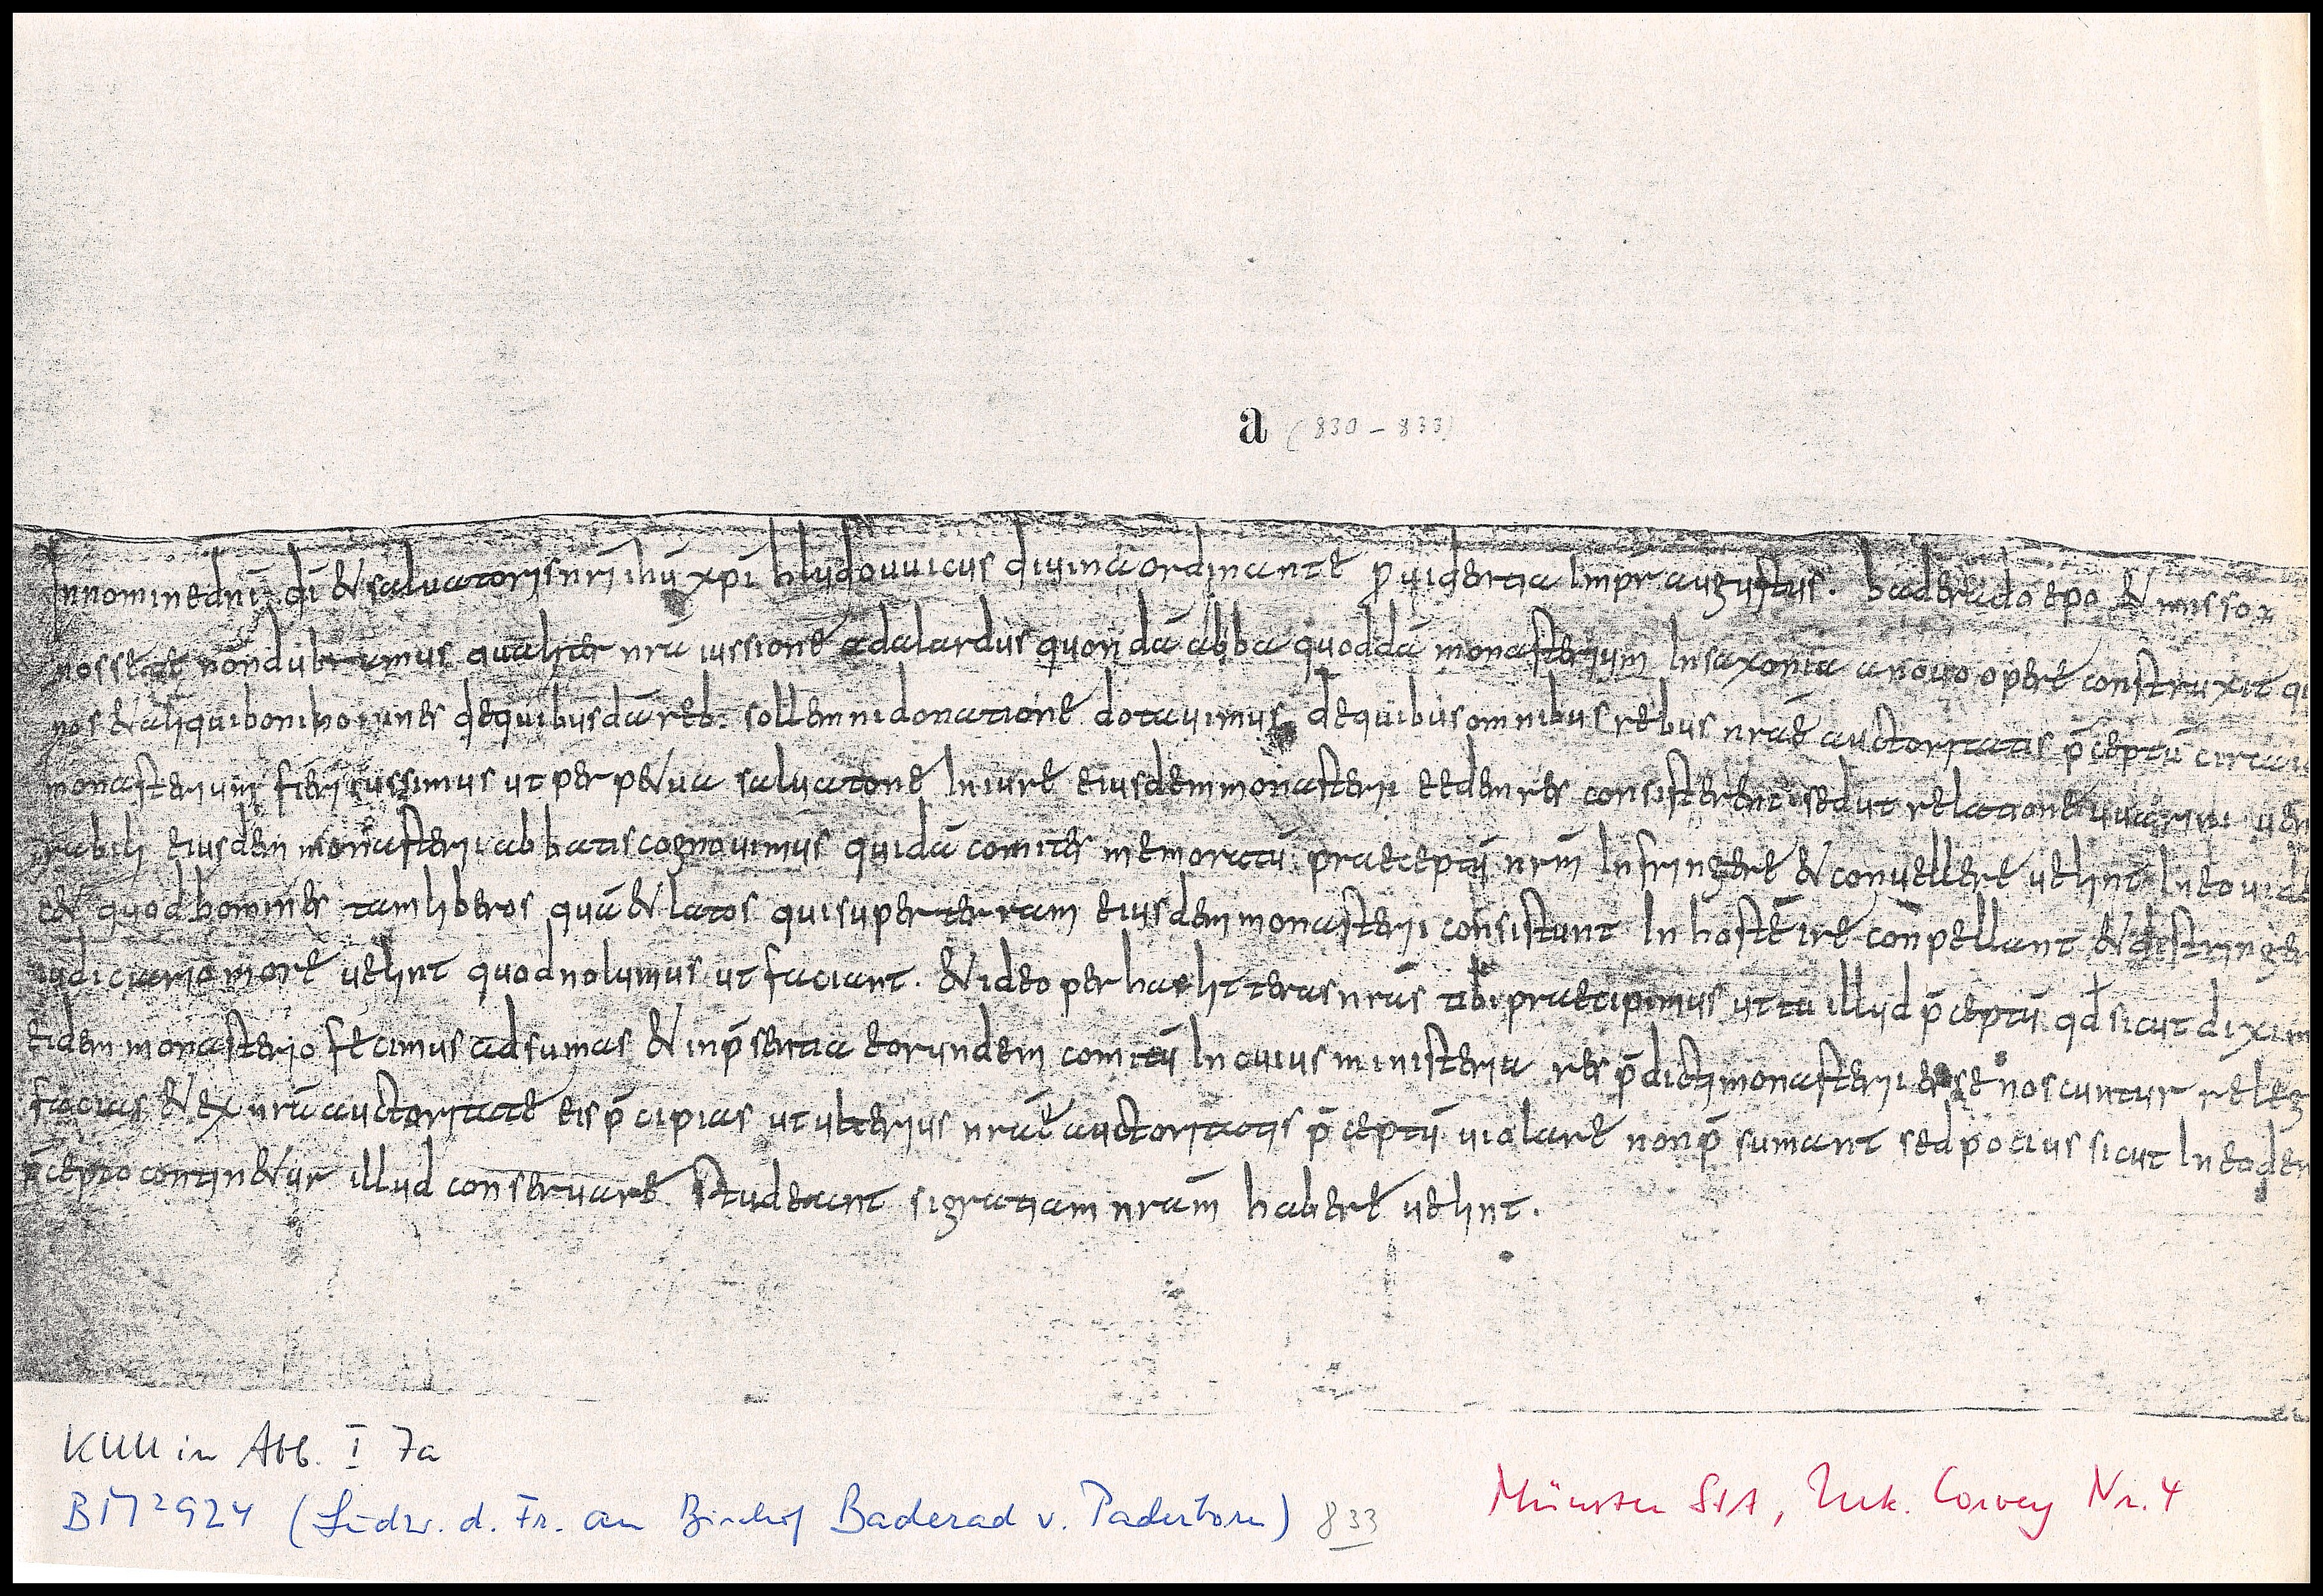 a (830 – 833)
In nomine dni di & saluatoris nri ihu xpi hludouuicus diuina ordinante puidentia Impr augustus. baderado epo & misso
nosse te non dubitamus qualiter nra iussione adalardus quondā abba quoddā monasterium In saxonia a nouo opere construxit
nos & aliqui boni homines de quibusdā reb. sollemni donatione dotauimus de quibus omnibus rebus nrae auctoritatis p̄ceptū circa
monasterium fieri iussimus ut perp&ua saluatone In iure eiusdem monasterii eedem res consisterent sed ut relatione uuarini uen
rabili eiusdem monasterii abbatis cognouimus quidā comites memoratū praeceptū nrm Infringere & conuellere uelint In eo uidel
c& quod homines tam liberos quā & latos qui super terram eiusdem monasterii consistunt In hostē ire conpellant & distringer
iudiciario more uelint quod nolumus ut faciant. & ideo per has litteras nras tibi praecipimus ut tu illud p̄ceptū qd sicut dixim
eidem monasterio fecimus adsumas & in p̄sentia eorundem comitū In cuius ministeria res p̄dicti monasterii esse noscuntur releg
facias & ex nra auctoritate eis p̄cipias ut ulterius nrae auctoritatis p̄ceptū uiolare non p̄sumant sed pocius sicut In eodem
p̄cepto contin&ur illud conseruare studeant si gratiam nram habere uelint.
KUU in Abb. I 7a
BM² 924 (Ludw. d. Fr. an Bischof Baderad v. Paderborn) 833
Münster StA, Urk. Corvey Nr. 4